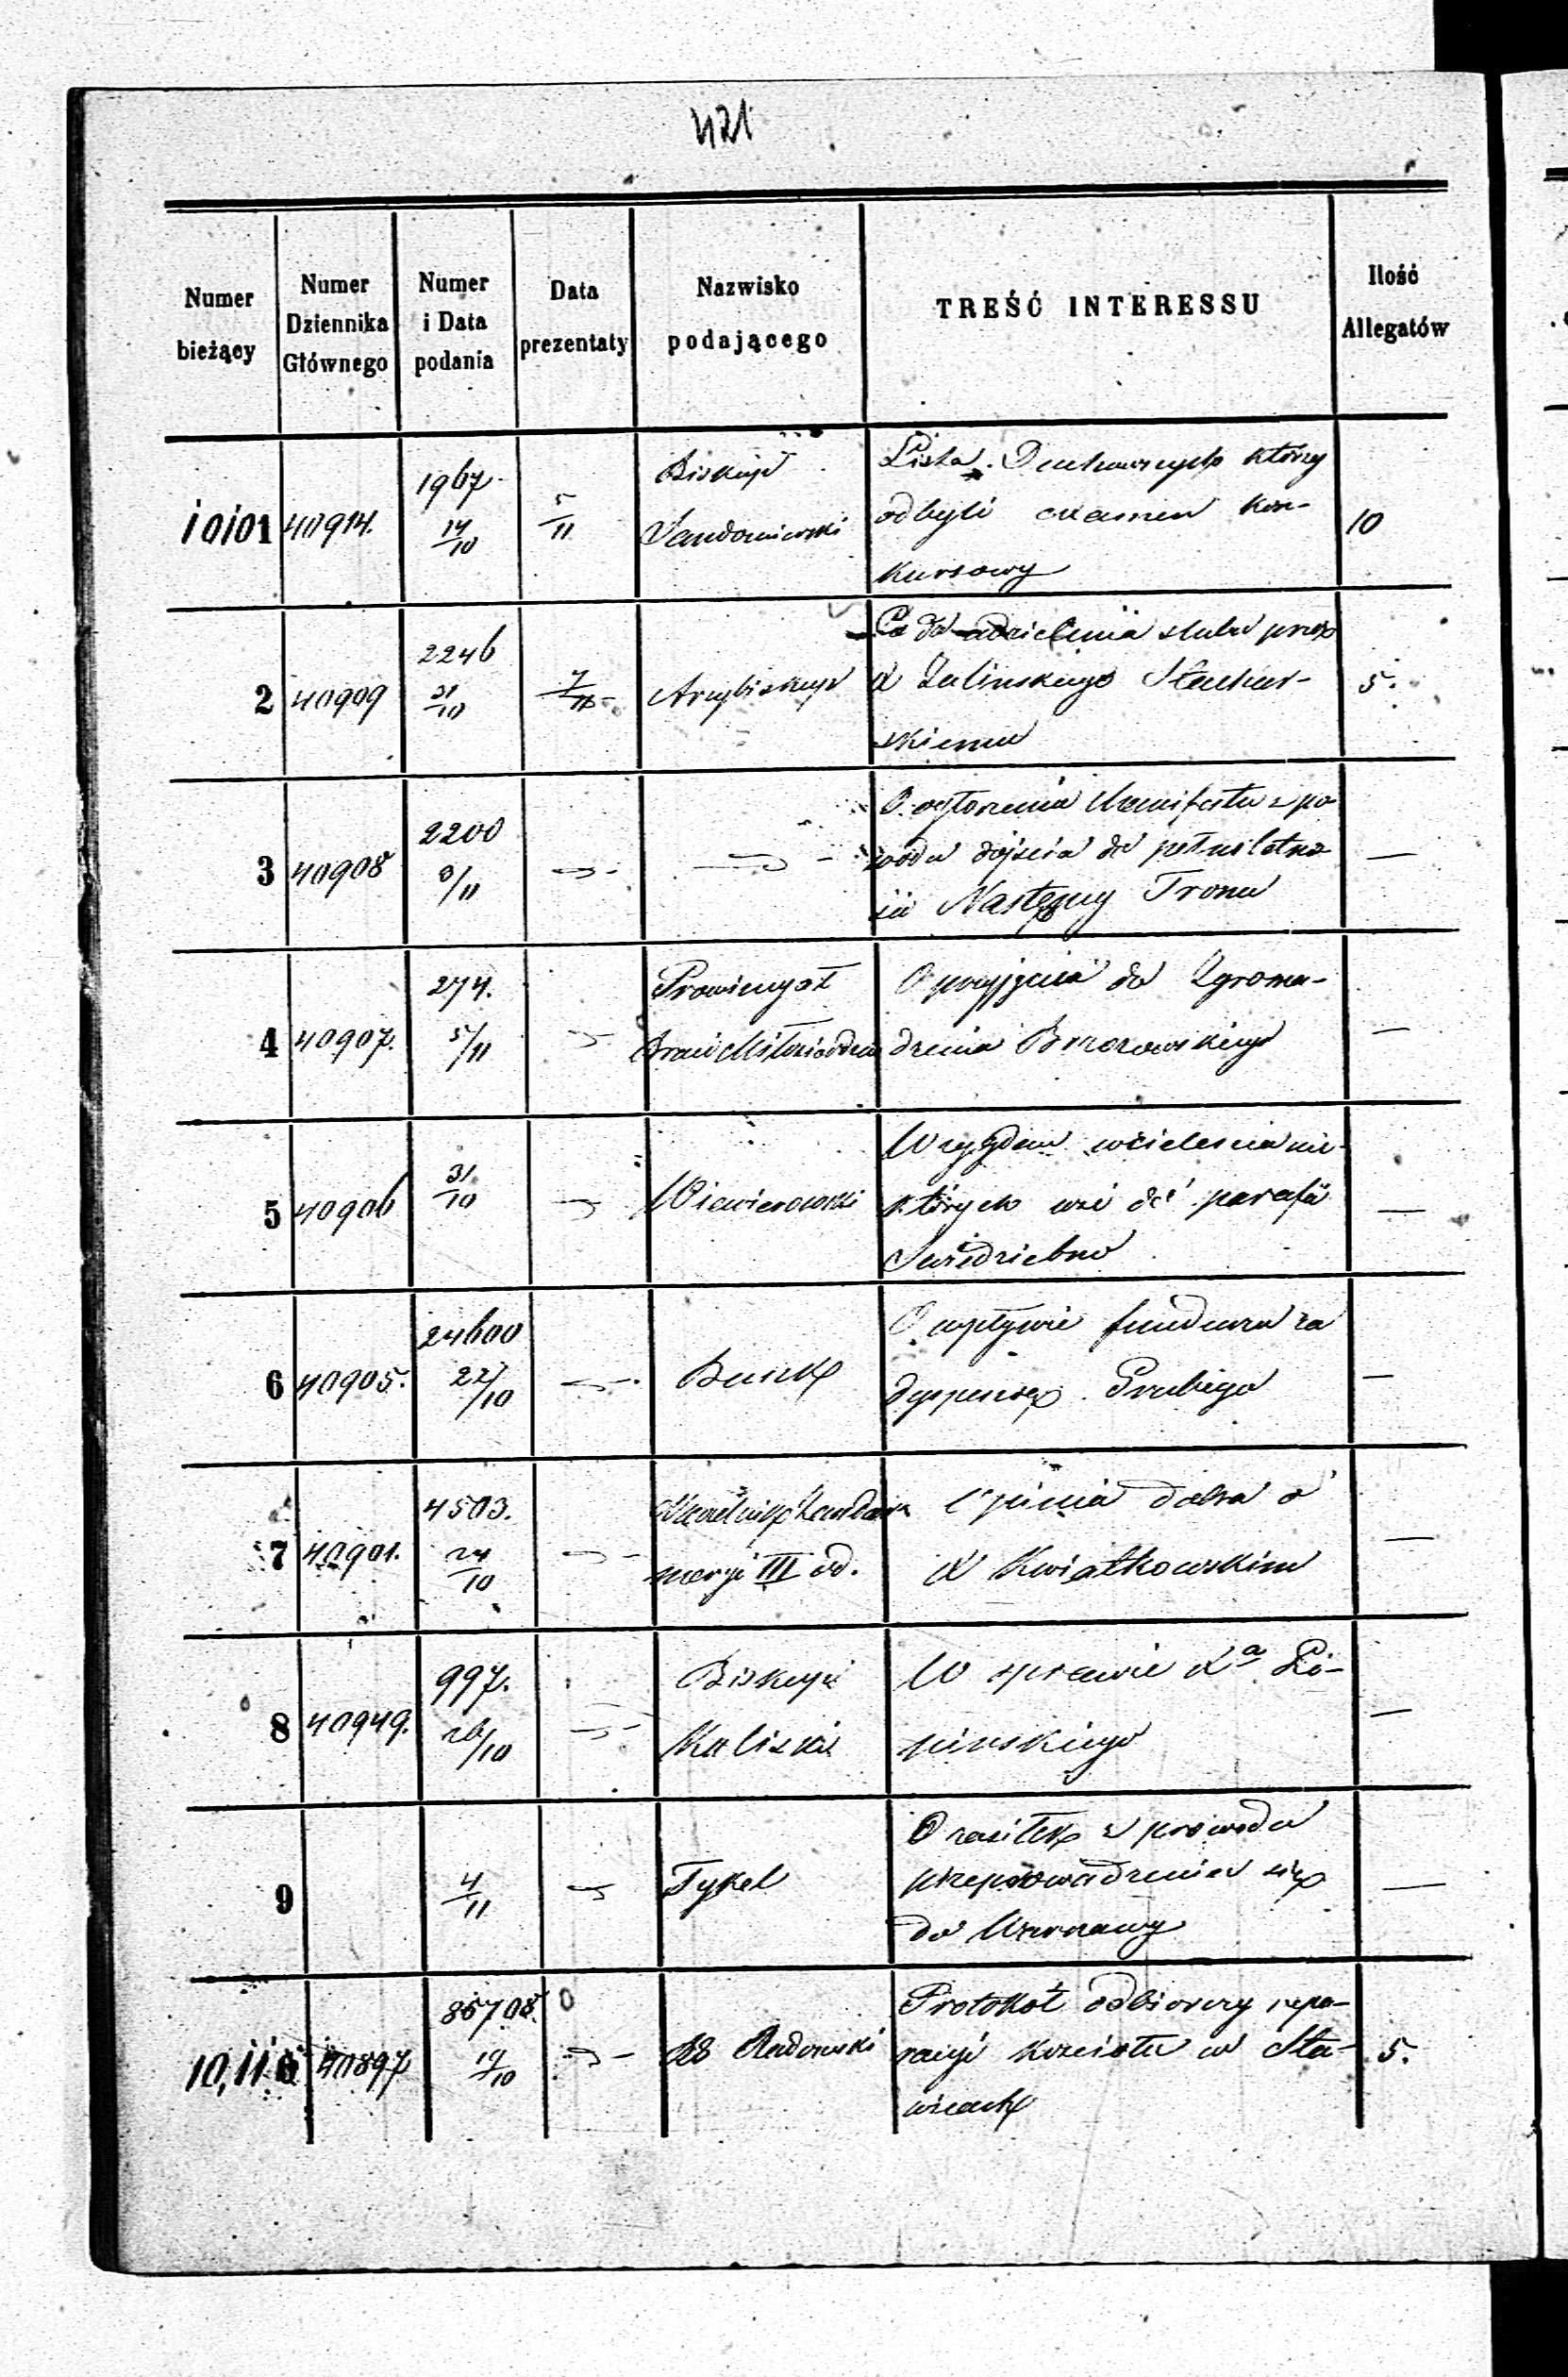 421
Numer bieżący | Numer Dziennika Głównego | Numer i Data podania | Data prezentaty | Nazwisko podającego | TREŚĆ INTERESSU | Ilość Allegatów
10101 | 40914. | 1967 14/10 | 5/11 | Biskup Sandomierski | Lista Duchownych którzy
odbyli examen kon-
kursowy | 10
2 | 40909 | 2246 31/10 | 7/11 | Arcybiskup | Co do udzielenia ślubu przez
X Zalinskiego Stachur-
skiemu | 5.
3 | 40908 | 2200 /11 | " | " | O ogłoszenia Manifestu z po
wodu dojścia do pełnoletno
ści Następcy Tronu | —
4 | 40907. | 274. 5/11 | " | Prowincyał
Braci Miłosierdzia | O przyjęcia do Zgroma-
dzenia Brzozowskiego | —
5 | 40906 | 31/10 | " | Wiewiorowski | Względem wcielenia nie
których wsi do parafii
Swiedziebno | —
6 | 40905. | 24600 22/10 | " | | O wpływie funduszu za
dyspensę | —
7 | 40901. | 4503. 24/10 | " | Naczelnik Żandar
meryi III od. | Opinia dobra o
X Kwiatkowskim | —
8 | 40949. | 997. 26/10 | " | Biskup
Kaliski | W sprawie Xa Li-
pinskiego | —
9 | 4/11 | " | Tykel | O zasiłek z powodu
przeprowadzenia się
do Warszawy | —
10,110 | 40897 | 86708. 19/10 | " | RG Radomski | Protokół odbiorczy repa-
racyi kościoła w Sła-
wicach | 5.